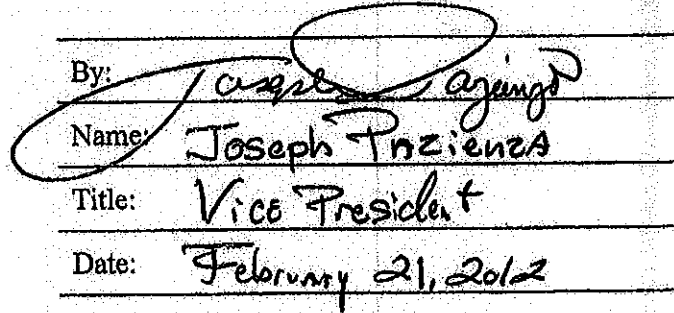 By: Joseph Pazienza
Name: Joseph Pazienza
Title: Vice President
Date: February 21, 2012